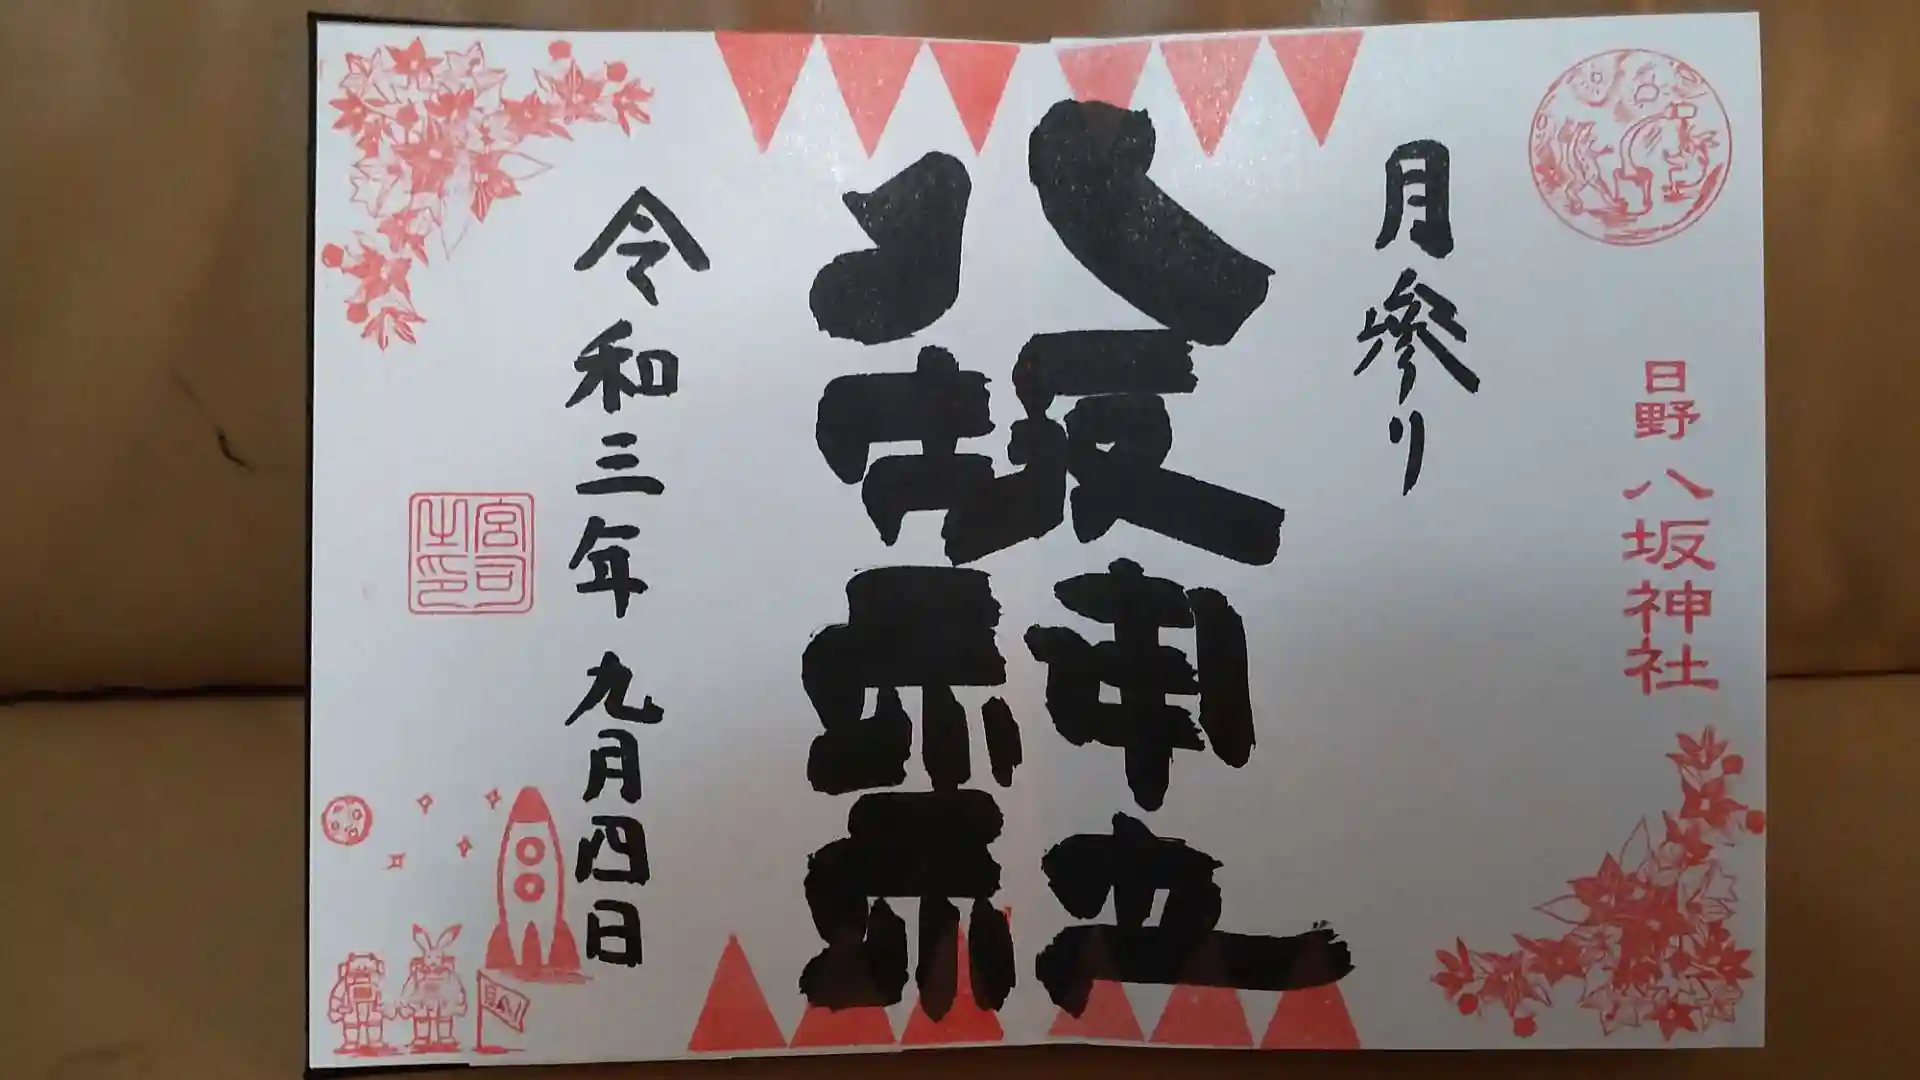 日野 八坂神社
月参り
八坂神社
令和三年九月四日
宮司之印
月参り